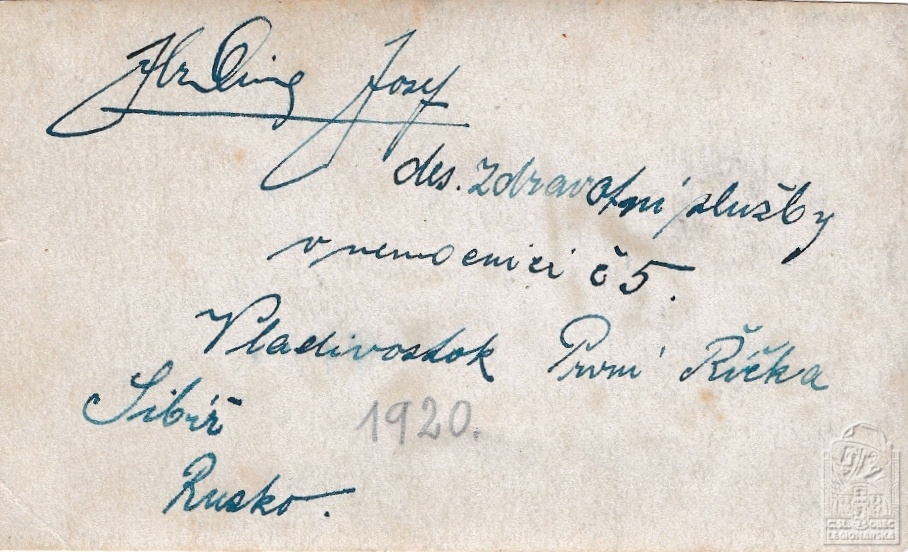 Josef
des. zdravotní služby
v nemocnici č 5.
Vladivostok První Řička
Sibiř
1920.
Rusko.
ČSL. OBEC
LEGIONÁŘSKÁ